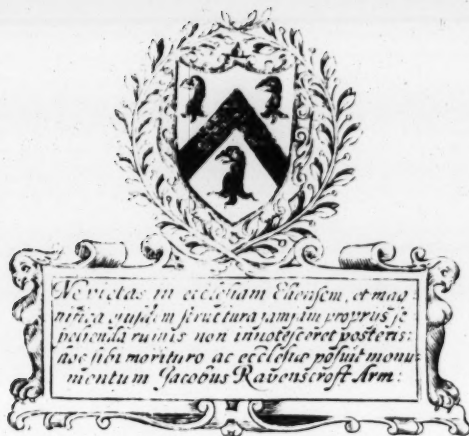 Ne pietas in ecclesiam Eliensem, et mag
nifica ejusdem structura jamjam proprijs se
pelienda ruinis non innotesceret posteris:
hoc sibi morituro ac ecclesiæ posuit monu
mentum Jacobus Ravenscroft Arm: